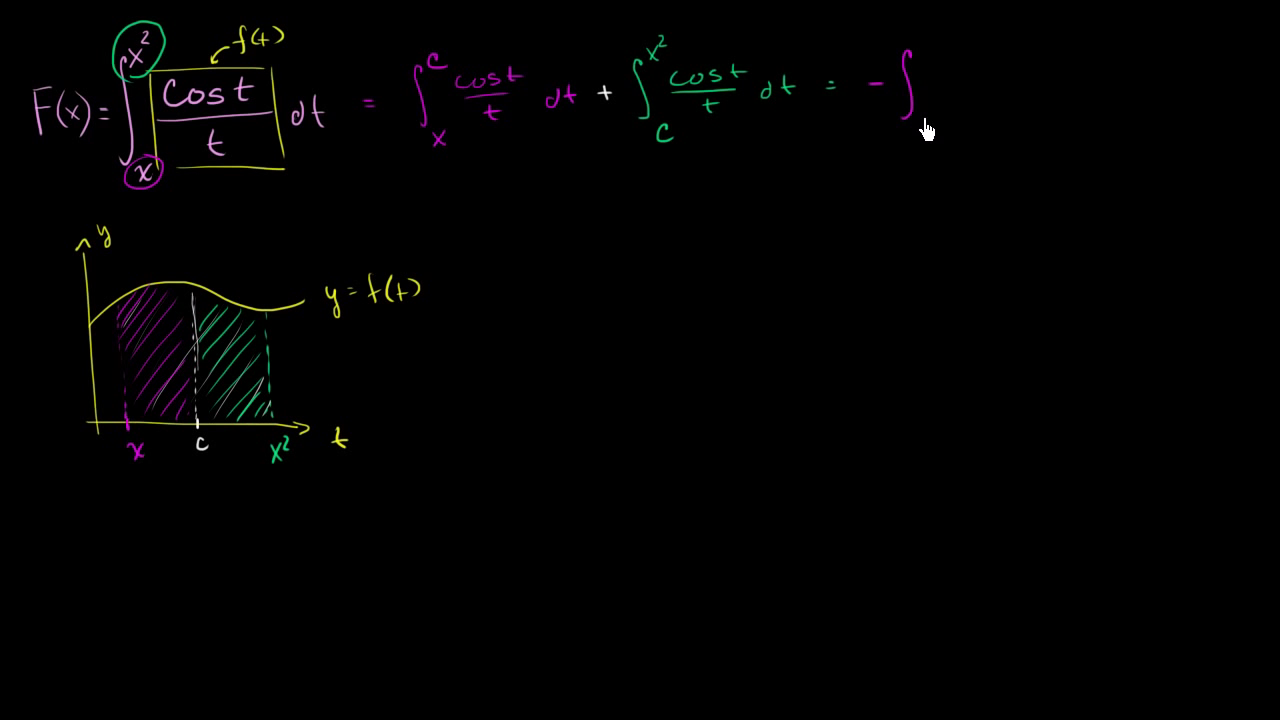 F(x) = ∫_x^{x²} cos t / t dt = ∫_x^c cos t / t dt + ∫_c^{x²} cos t / t dt = - ∫
f(t)
y
y = f(t)
x c x² t